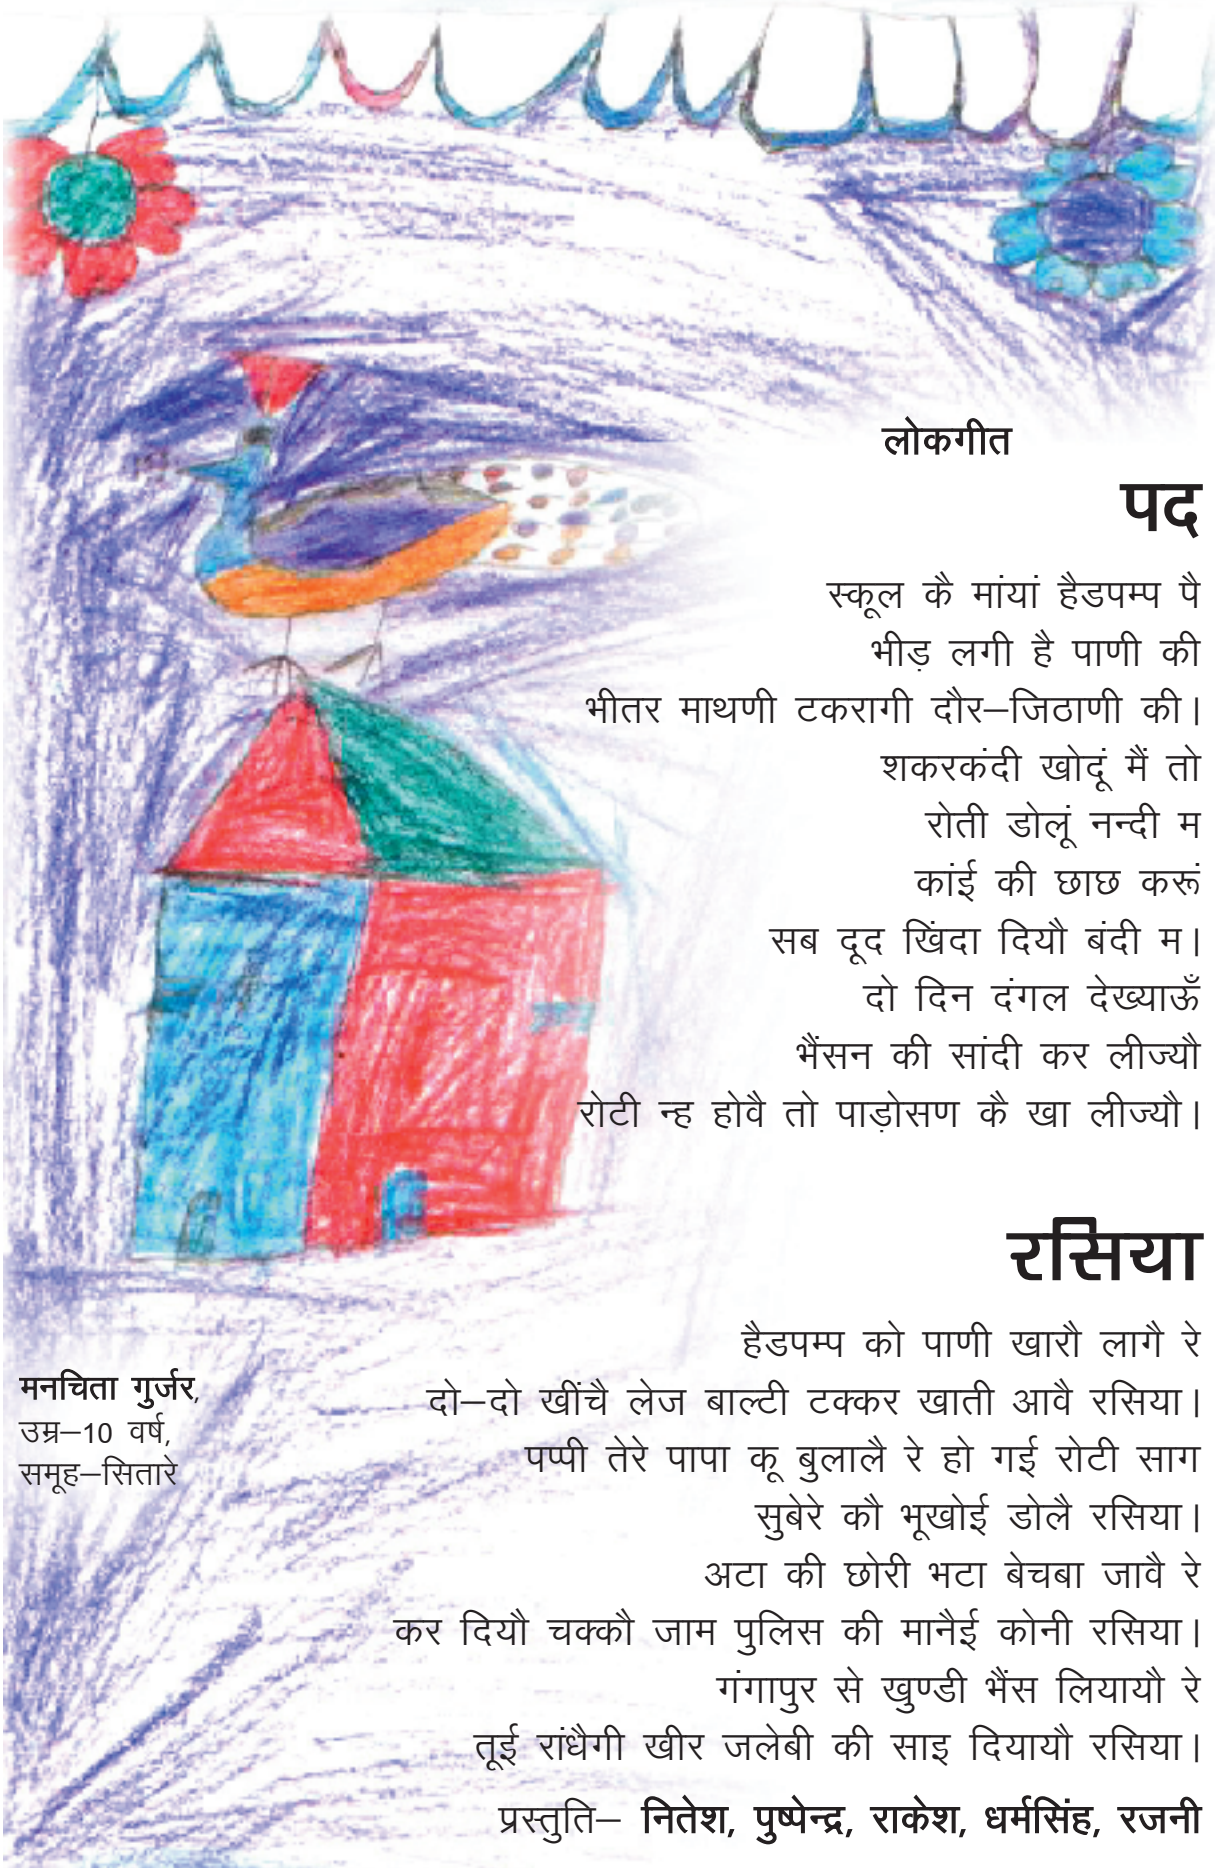 लोकगीत
पद
स्कूल कै मांयां हैडपम्प पै
भीड़ लगी है पाणी की
भीतर माथणी टकरागी दौर–जिठाणी की।
शकरकंदी खोदूं मैं तो
रोती डोलूं नन्दी म
कांई की छाछ करूं
सब दूद खिंदा दियौ बंदी म।
दो दिन दंगल देख्याऊँ
भैंसन की सांदी कर लीज्यौ
रोटी न्ह होवै तो पाड़ोसण कै खा लीज्यौ।
रसिया
हैडपम्प को पाणी खारौ लागै रे
दो–दो खींचै लेज बाल्टी टक्कर खाती आवै रसिया।
पप्पी तेरे पापा कू बुलालै रे हो गई रोटी साग
सुबेरे कौ भूखोई डोलै रसिया।
अटा की छोरी भटा बेचबा जावै रे
कर दियौ चक्कौ जाम पुलिस की मानैई कोनी रसिया।
गंगापुर से खुण्डी भैंस लियायौ रे
तूई रांधैगी खीर जलेबी की साइ दियायौ रसिया।
प्रस्तुति– नितेश, पुष्पेन्द्र, राकेश, धर्मसिंह, रजनी
मनचिता गुर्जर,
उम्र–10 वर्ष,
समूह–सितारे